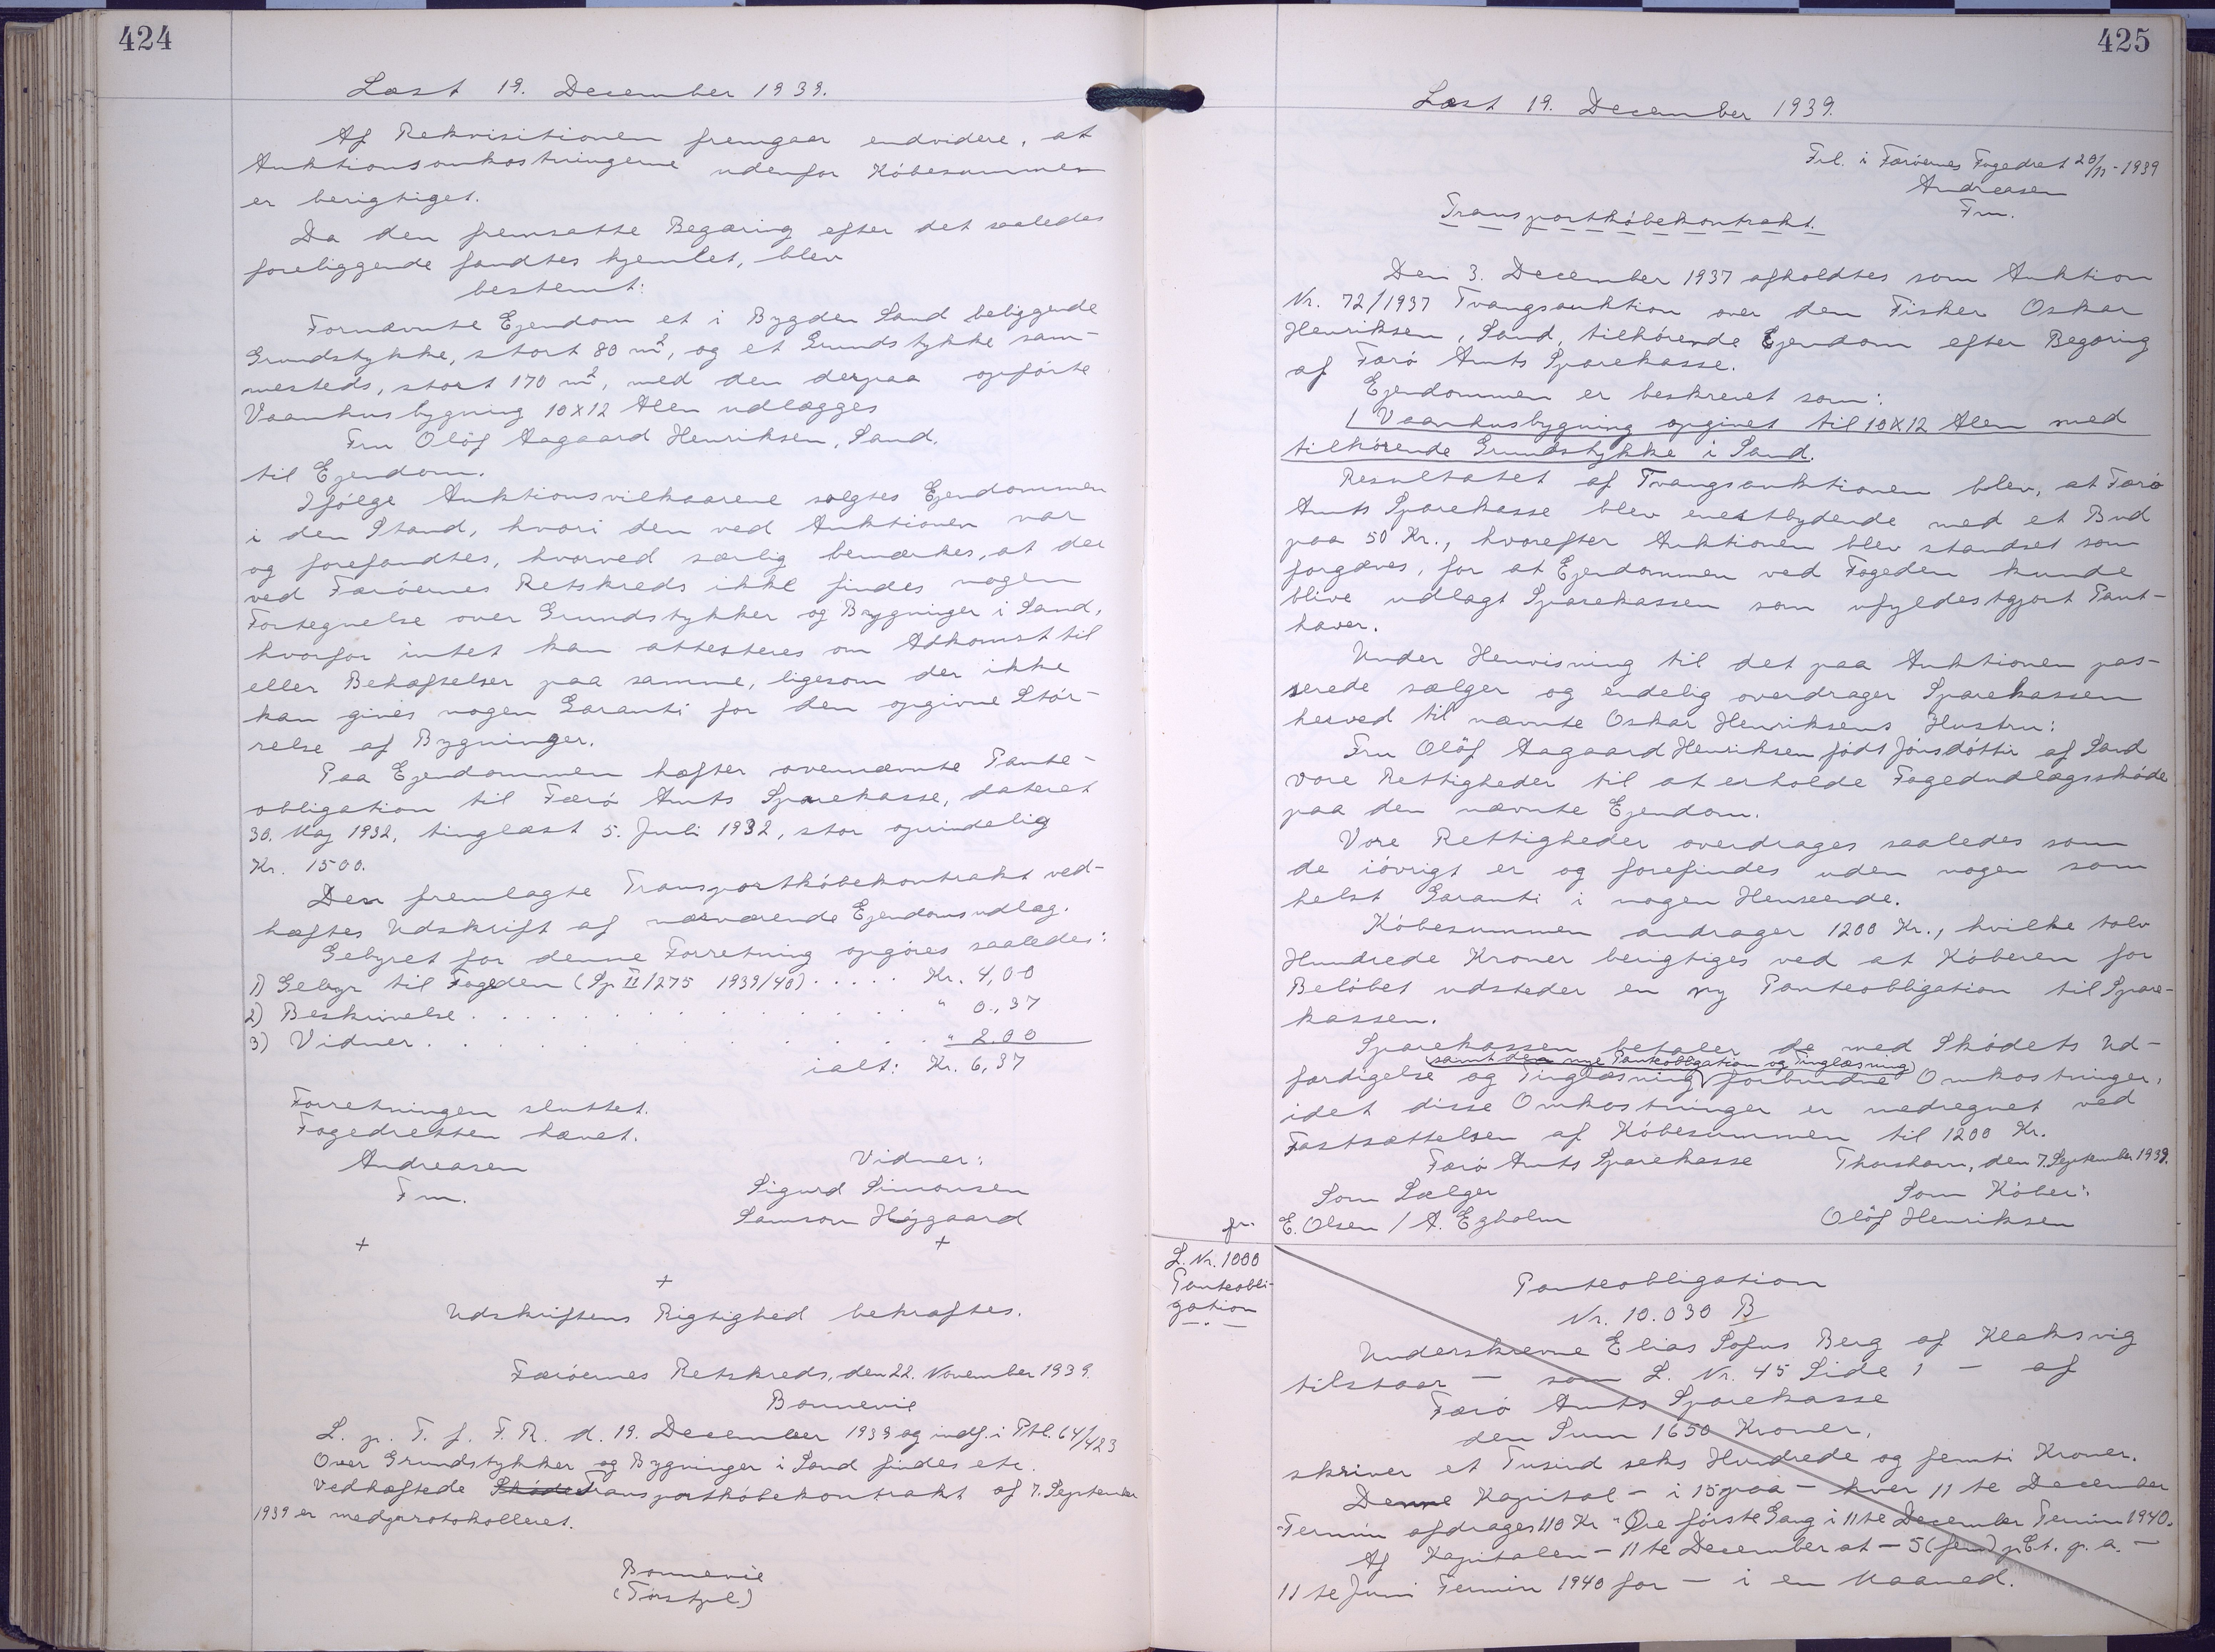 424
Læst 19. December 1939.
Af Rekvisitionen fremgaar endvidere, at
Auktionsomkostningerne udenfor Købesummen
er berigtiget.
Da den fremsatte Begæring efter det saaledes
foreliggende fandtes hjemlet, blev
bestemt:
Fornævnte Ejendom et i Bygden Sand beliggende
Grundstykke, stort 80 m², og et Grundstykke sam-
mesteds, stort 170 m², med den derpaa opførte
Vaanhusbygning 10x12 Alen udlægges
Fru Olöf Aagaard Henriksen, Sand,
til Ejendom.
Ifølge Auktionsvilkaarene solgtes Ejendommen
i den Stand, hvori den ved Auktionen var
og forefandtes, hvorved særlig bemærkes, at der
ved Færøernes Retskreds ikke findes nogen
Fortegnelse over Grundstykker og Bygninger i Sand,
hvorfor intet kan attesteres om Adkomst til
eller Behæftelser paa samme, ligesom der ikke
kan gives nogen Garanti for den opgivne Stør-
relse af Bygninger.
Paa Ejendommen hæfter ovennævnte Pante-
obligation til Færø Amts Sparekasse, dateret
30. Maj 1932, tinglæst 5. Juli 1932, stor oprindelig
Kr. 1500.
Den fremlagte Transportkøbekontrakt ved-
hæftes Udskrift af nærværende Ejendomsudlæg.
Gebyret for denne Forretning opgøres saaledes:
1) Gebyr til Fogden (Sp II/275 1939/40) ..... Kr. 4,00
2) Beskrivelse . . . . . . . . . . . . . . " 0,37
3) Vidner . . . . . . . . . . . . . . . " 2.00
ialt: Kr. 6,37
Forretningen sluttet.
Fogedretten hævet.
Andreasen
Fm.
Vidner:
Sigurd Simonsen
Samson Højgaard
+ +
+
Udskriftens Rigtighed bekræftes.
Færøernes Retskreds, den 22. November 1939.
Bonnevie
L. p. T. f. F. R. d. 19. December 1939 og indf. i Ptbl. 64/423
Over Grundstykker og Bygninger i Sand findes etc.
Vedhæftede Skøde Transportkøbekontrakt af 7. September
1939 er medprotokolleret.
Bonnevie
425
Læst 19. December 1939.
Frl. i Færøernes Fogedret 20/11-1939
Andreasen
Fm.
Transportkøbekontrakt.
Den 3. December 1937 afholdtes som Auktion
Nr. 72/1937 Tvangsauktion over den Fisker Oskar
Henriksen, Sand, tilhørende Ejendom efter Begæring
af Færø Amts Sparekasse.
Ejendommen er beskrevet som:
1 Vaanhusbygning opgivet til 10x12 Alen med
tilhørende Grundstykke i Sand.
Resultatet af Tvangsauktionen blev, at Færø
Amts Sparekasse blev enestbydende med et Bud
paa 50 Kr., hvorefter Auktionen blev standset som
forgæves, for at Ejendommen ved Fogeden kunde
blive udlagt Sparekassen som ufyldestgjort Pant-
haver.
Under Henvisning til det paa Auktionen pas-
serede sælger og endelig overdrager Sparekassen
herved til nævnte Oskar Henriksens Hustru:
Fru Olöf Aagaard Henriksen født Jónsdóttir af Sand
vore Rettigheder til at erholde Fogedudlægsskøde
paa den nævnte Ejendom.
Vore Rettigheder overdrages saaledes som
de iøvrigt er og forefindes uden nogen som
helst Garanti i nogen Henseende.
Købesummen andrager 1200 Kr., hvilke tolv
Hundrede Kroner berigtiges ved at Køberen for
Beløbet udsteder en ny Panteobligation til Spare-
kassen.
Sparekassen betaler de med Skødets Ud-
samt den nye Panteobligation og Tinglæsning
færdigelse og Tinglæsning forbundne Omkostninger,
idet disse Omkostninger er medregnet ved
Fastsættelsen af Købesummen til 1200 Kr.
Færø Amts Sparekasse Thorshavn, den 7. September 1939.
Som Sælger Som Køber:
E. Olsen / A. Egholm Olöf Henriksen
gr.
L. Nr. 1000
Panteobli-
gation
Panteobligation
Nr. 10.030 B
Underskrevne Elias Sofus Berg af Klaksvig
tilstaar — som L. Nr. 45 Side 1 — af
Færø Amts Sparekasse
den Sum 1650 Kroner,
skriver et Tusind seks Hundrede og femti Kroner.
Denne Kapital — i 15 paa — hver 11te December
Termin afdrages 110 Kr " Øre første Gang i 11te December Termin 1940.
Af Kapitalen — 11te December at — 5 (fem) pCt. p. a. —
11te Juni Termin 1940 for — i en Maaned.